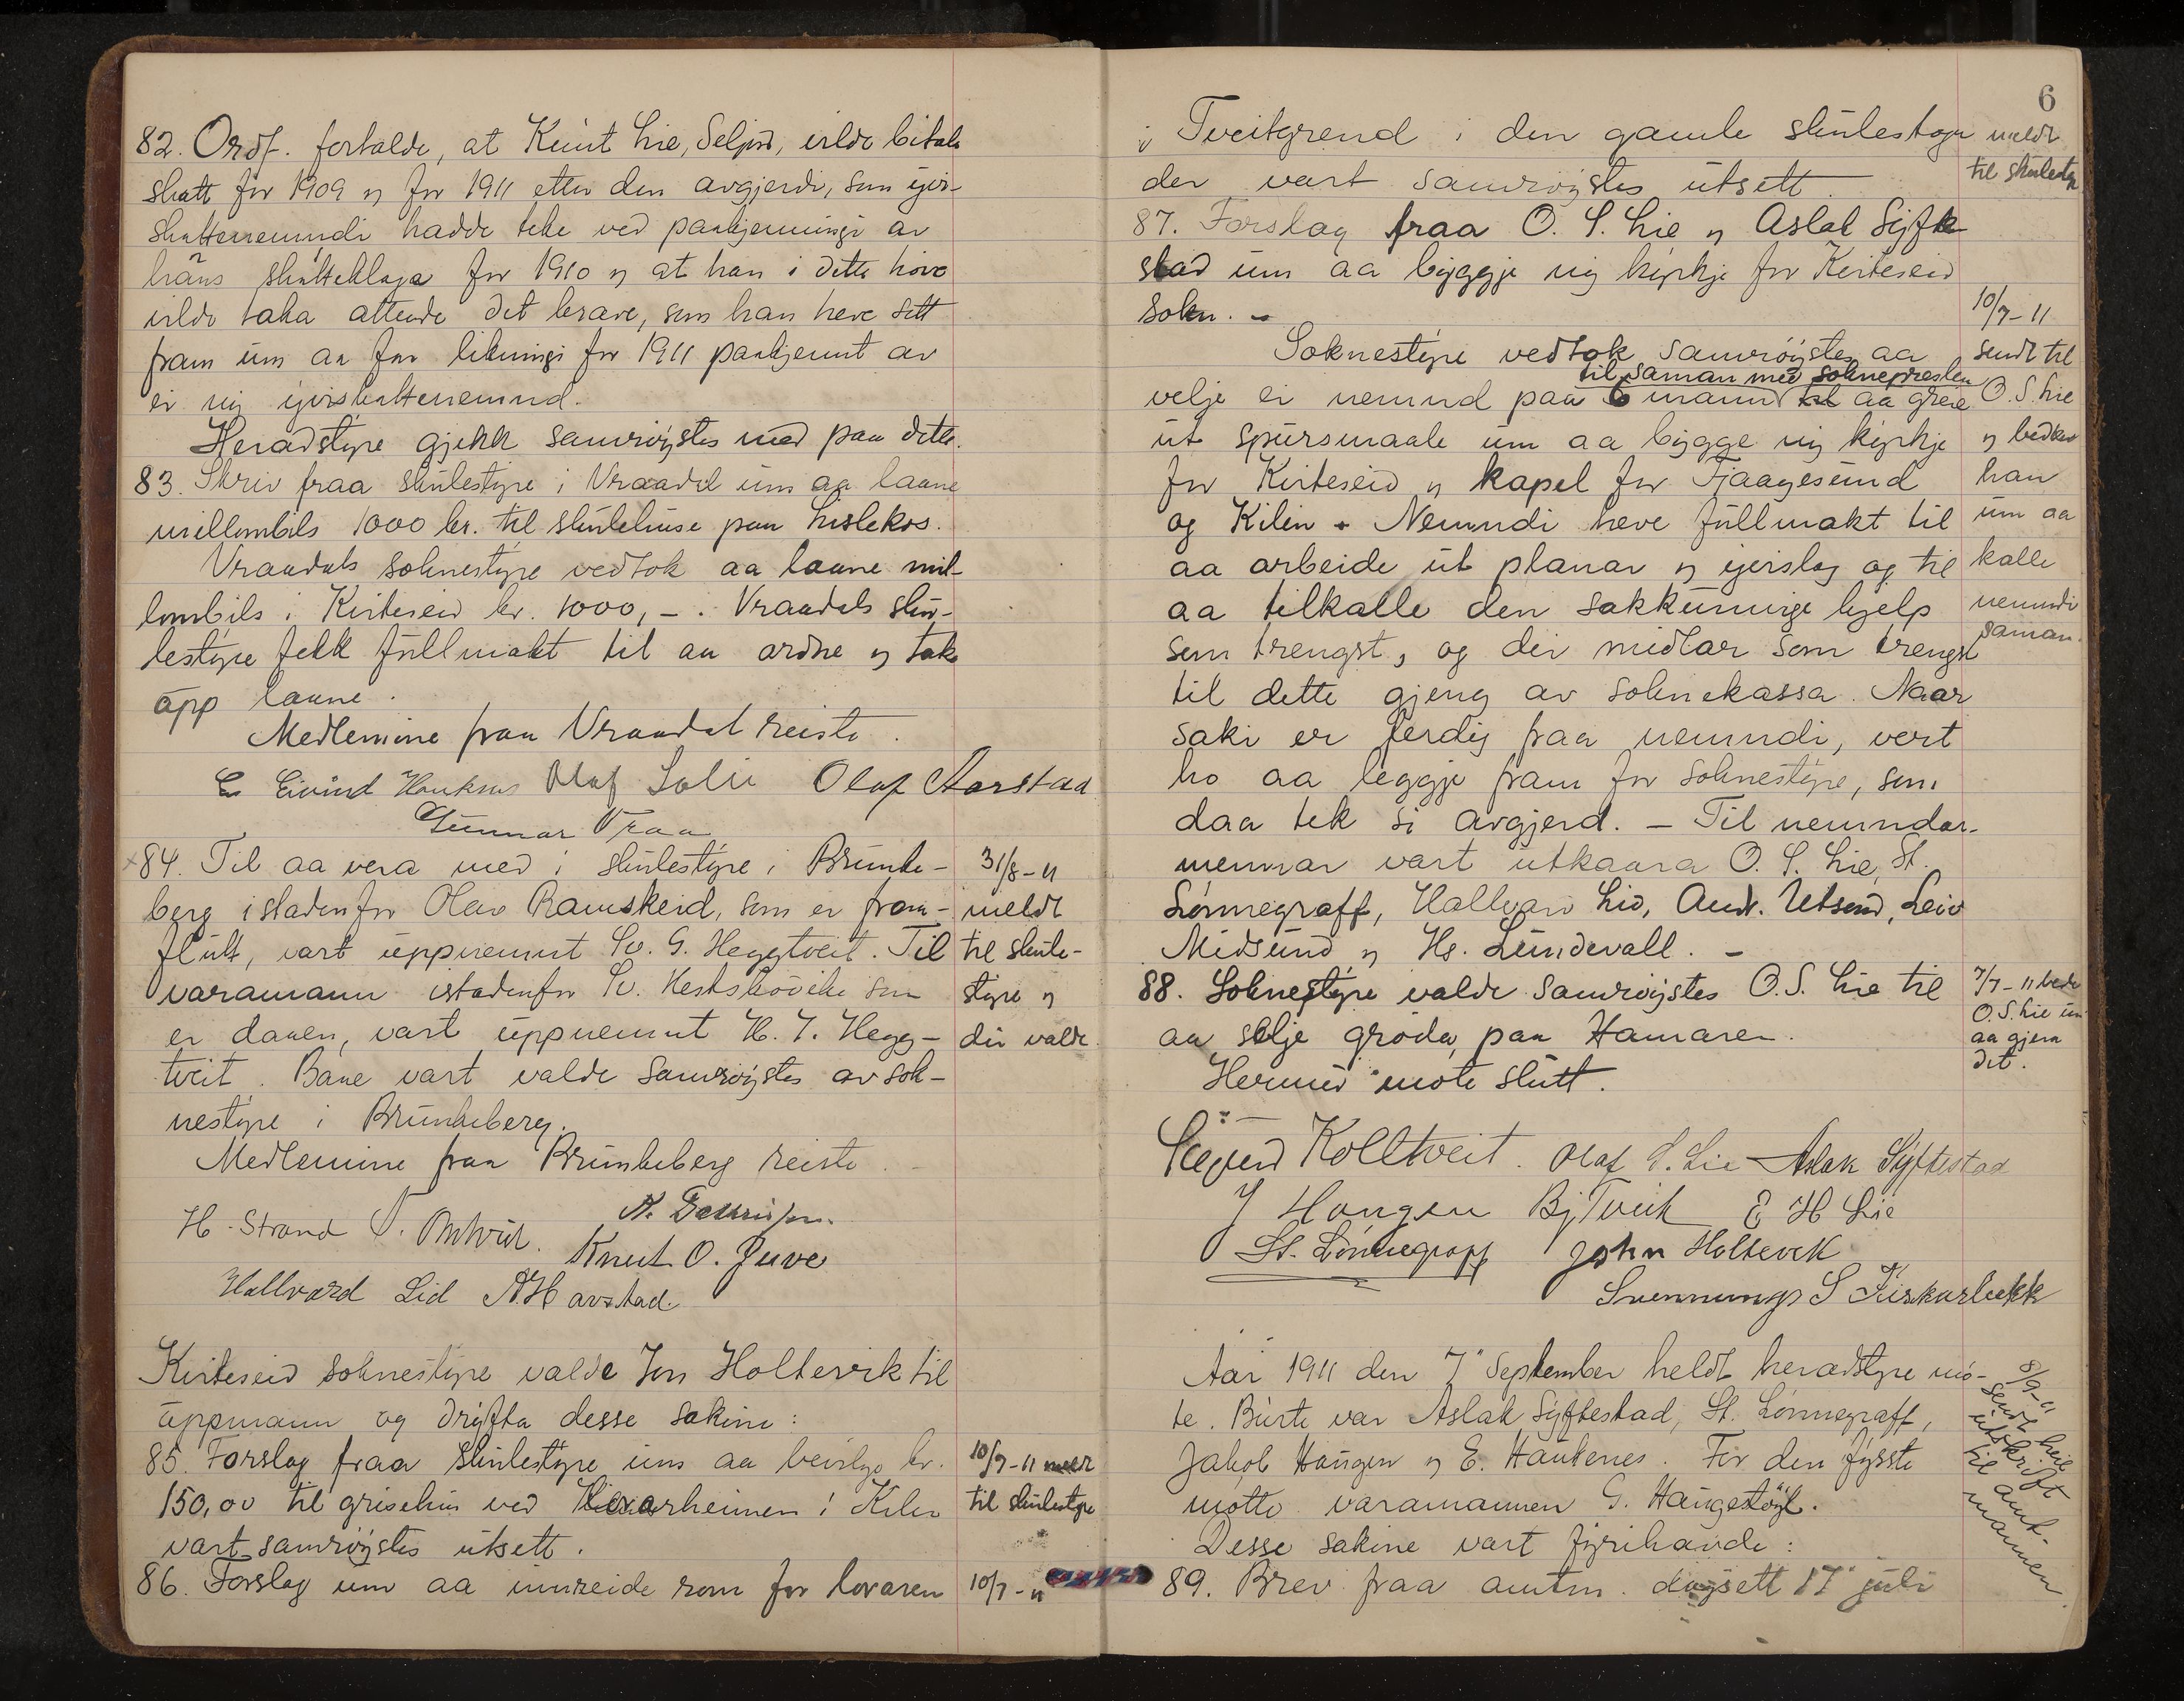 82. Ordf. fortalde, at Knut Lie, Seljord, vilde bitala
skatt for 1909 og for 1911 etter den avgjerdi, som yvir-
skattenemndi hadde teke ved paakjenningi av
hans skatteklaga for 1910 og at han i dette høve
vilde taka attende det krave, som han heve sett
fram um aa faa likningi for 1911 paakjennt av
ei ny yvirskattenemnd.
Heradstyre gjekk samrøystes med paa dette.
83. Skriv fraa skulestyre i Vraadal um aa laane
millombils 1000 kr. til skulehuse paa Lislekos.
Vraadals soknestyre vedtok aa laane mil-
lombils i Kviteseid kr. 1000,-. Vraadals sku-
lestyre fekk fullmakt til aa ordne og take
upp laane.
Medlemine fraa Vraadal reiste.
Eivind Hauknes Olaf Lolie Olaf Aarstad
Gunnar Vraa
84. Til aa vera med i skulestyre i Brunke-
berg istadenfor Olav Ramskeid, som er fraa-
flutt, vart uppnemnt Sv. G. Heggtveit. Til
varamann istadenfor Sv. som
er daaen, vart uppnemnt H. T. Hegg-
tveit. Bae vart valde samrøystes av sok-
nestyre i Brunkeberg.
Medlemine fraa Brunkeberg reiste.
31/8-11
meldt
til skule-
styre og
dei valde.
H. Strand
Knut O. Juve
Hallvard Lid A. Havstad.
Kviteseid soknestyre valde Jon Holtevik til
uppmann og drøfta desse sakine:
85. Forslag fraa skulestyre um aa beivilge kr.
150,00 til grisehus ved i Kilen
vart samrøystes utsett.
10/7-11 meldt
til skulestyre
86. Forslag um aa innreide rom for lovaren
10/7-11
6
i Tveitgrend i den gamle skulestoga
der vart samrøystes utsett.
meldt
til skulestyre
87. Forslag fraa O. S. Lie og Aslak Syfte-
stad um aa byggje ny kyrkje for Kviteseid
sokn. -
Soknestyre vedtok samrøystes aa
til saman med soknepresten
velje ei nemnd paa 6 mann aa greie
ut spursmaale um aa bygge ny kyrkje
for Kviteseid og kapel for Fjaagesund
og Kilen. Nemndi heve fullmakt til
aa arbeide ut planar og yverslag og til
aa tilkalle den sakkunnige hjelp
som trengst, og dei midlar som trengst
til dette gjeng av soknekassa. Naar
saki er ferdig fraa nemndi, vert
ho aa leggje fram for soknestyre, som
daa tek si avgjerd. - Til nemndar-
mennar vart utkaara O. S. Lie, St.
Lønnegraff, Hallvard Lid, Andr. Utsund, Leiv
Midsund og Hs. Lundevall. -
10/7-11
sendt til
O. S. Lie
og bedt
han
um aa
kalle
nemndi
saman.
88. Soknestyre valde samrøystes O. S. Lie til
aa selje grøda paa Hamaren.
7/7-11 bede
O. S. Lie um
aa gjera
det.
Hermed møte slutt.
Sigurd Kolltveit. Olaf S. Lie Aslak Syftestad
J Haugen Bj Tveit E H Lie
St. Lønnegraff John Holtevik
Svennung S Fiskarbekk
Aar 1911 den 7" September heldt heradstyre mø-
te. Burte var Aslak Syftestad, St. Lønnegraff,
Jakob Haugen og E. Haukenes. For den fysste
møtte varamannen G. Haugestøyl.
Desse sakine vart fyrihavde:
89. Brev fraa amtm. dagsett 17" juli
8/9-11
sendt
utskrift
til amt-
mannen